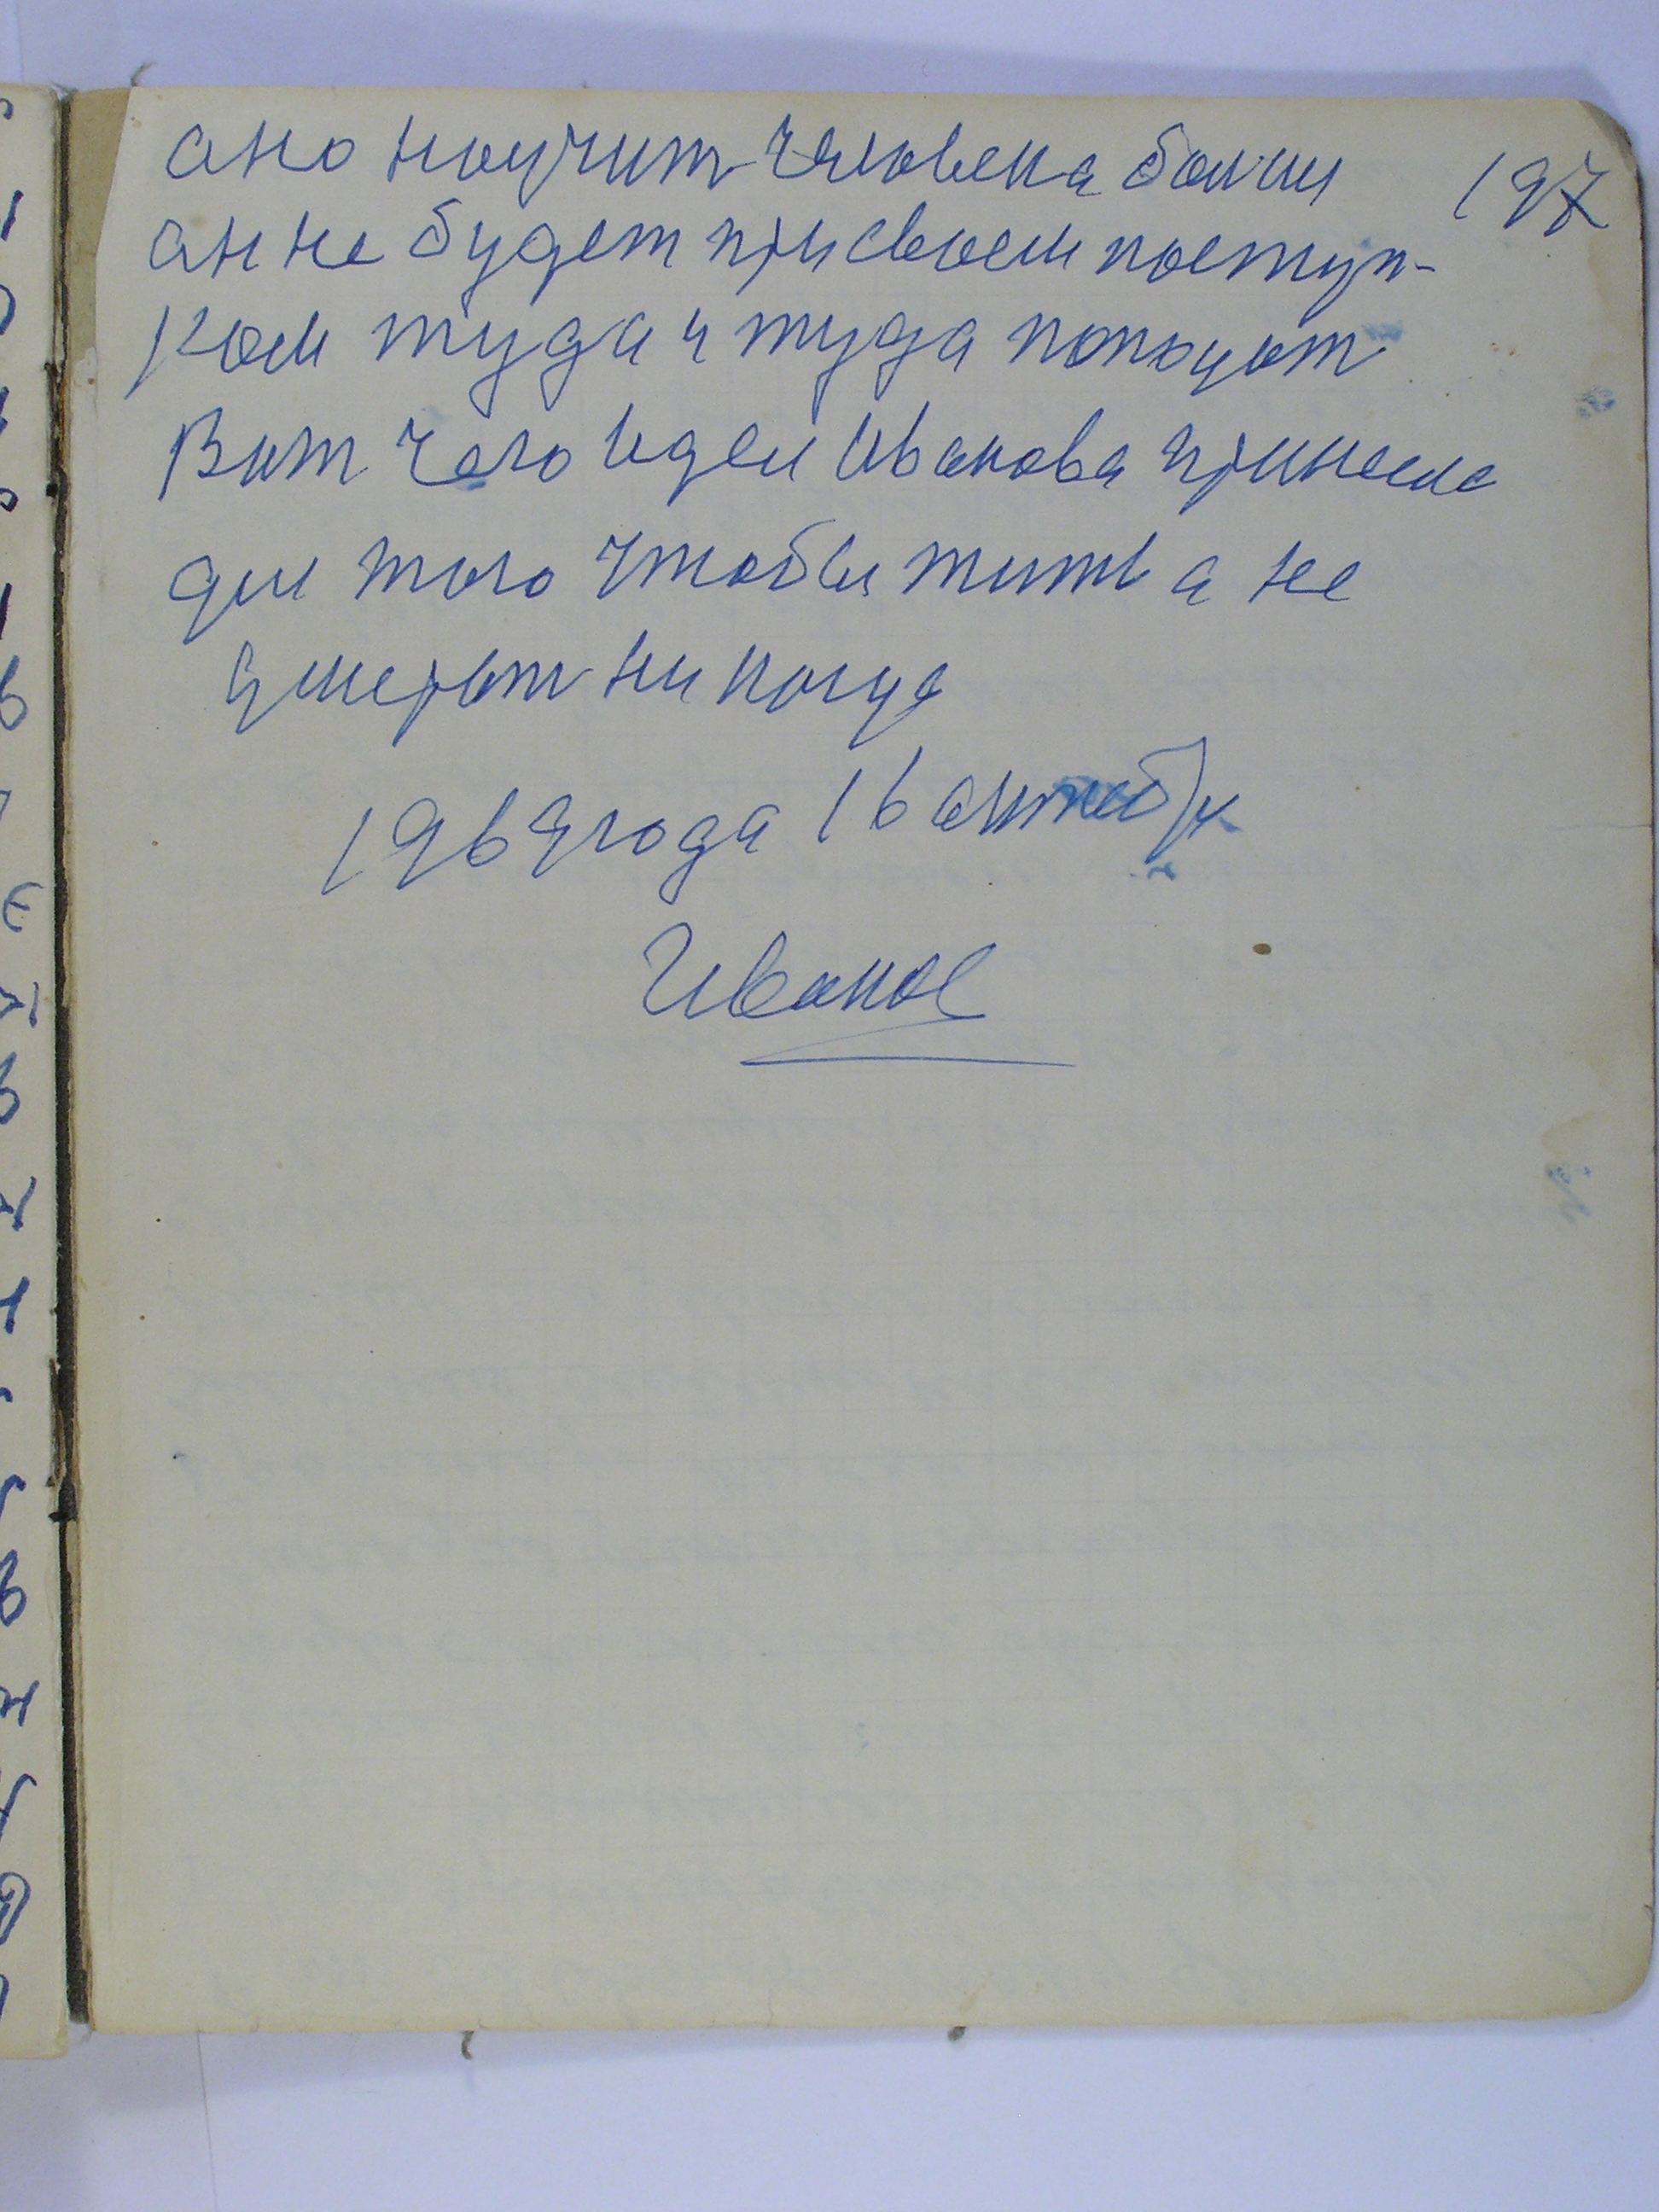 197
ано научит человека болии
ан не будет при своем поступ-
ком туда и туда попадат
Вит чего идея Иванова принесла
для того чтобы жить а не
умерат ни когда
1969 года 16 актября
Иванов